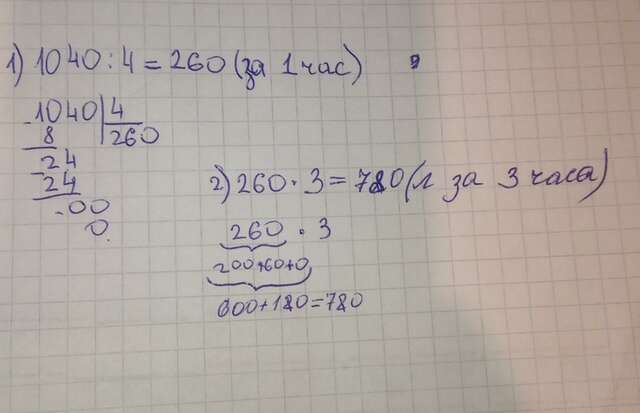 1) 1040 : 4 = 260 (за 1 час)
1040 | 4
8 | 260
24
24
00
0
2) 260 · 3 = 780 (л за 3 часа)
260 · 3
200+60+0
600+180=780